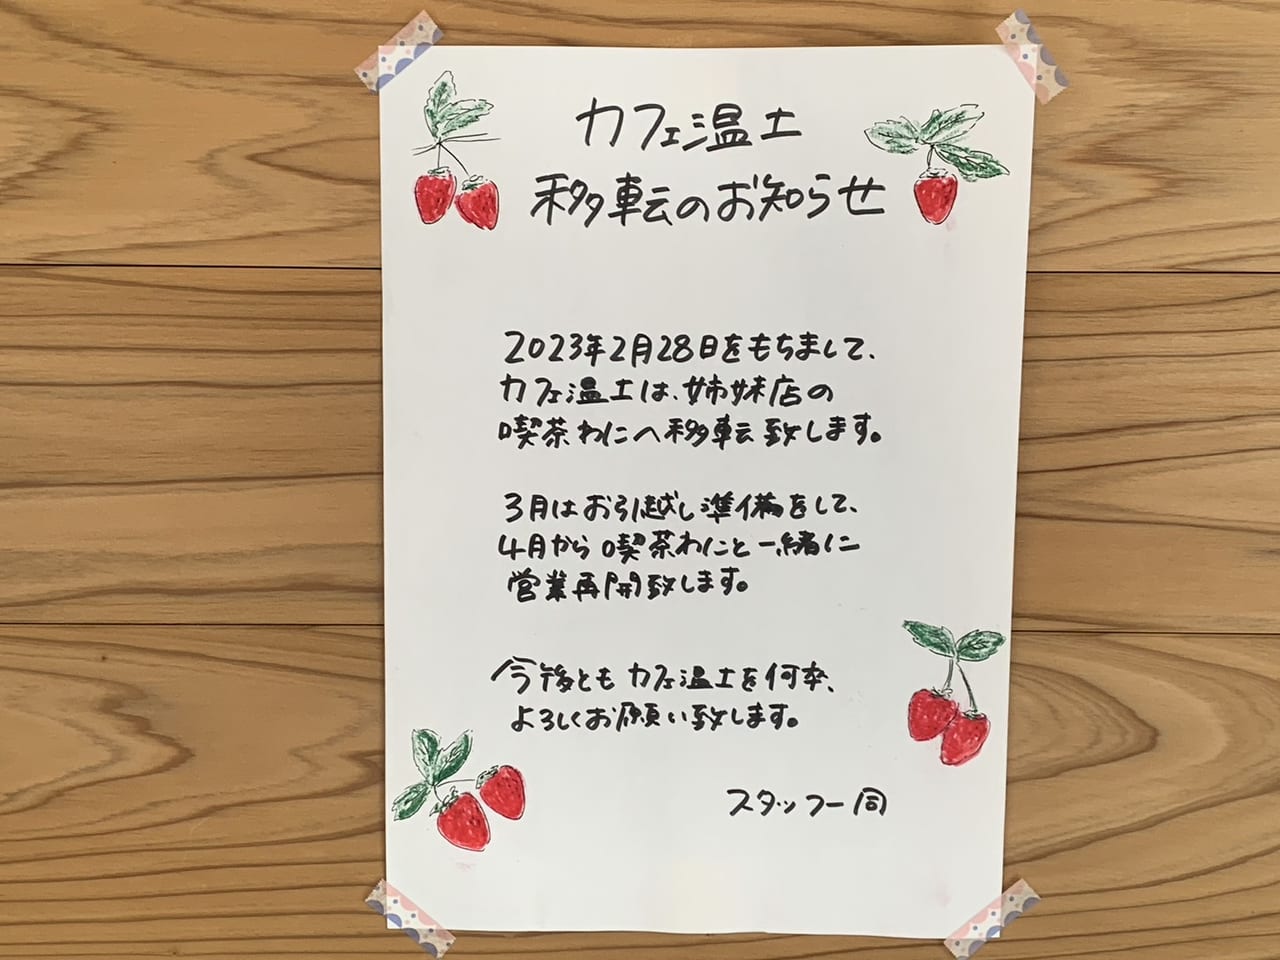 カフェ温土
移転のお知らせ
2023年2月28日をもちまして、
カフェ温土は、姉妹店の
喫茶わにへ移転致します。
3月はお引越し準備をして、
4月から喫茶わにと一緒に
営業再開致します。
今後ともカフェ温土を何卒、
よろしくお願い致します。
スタッフ一同